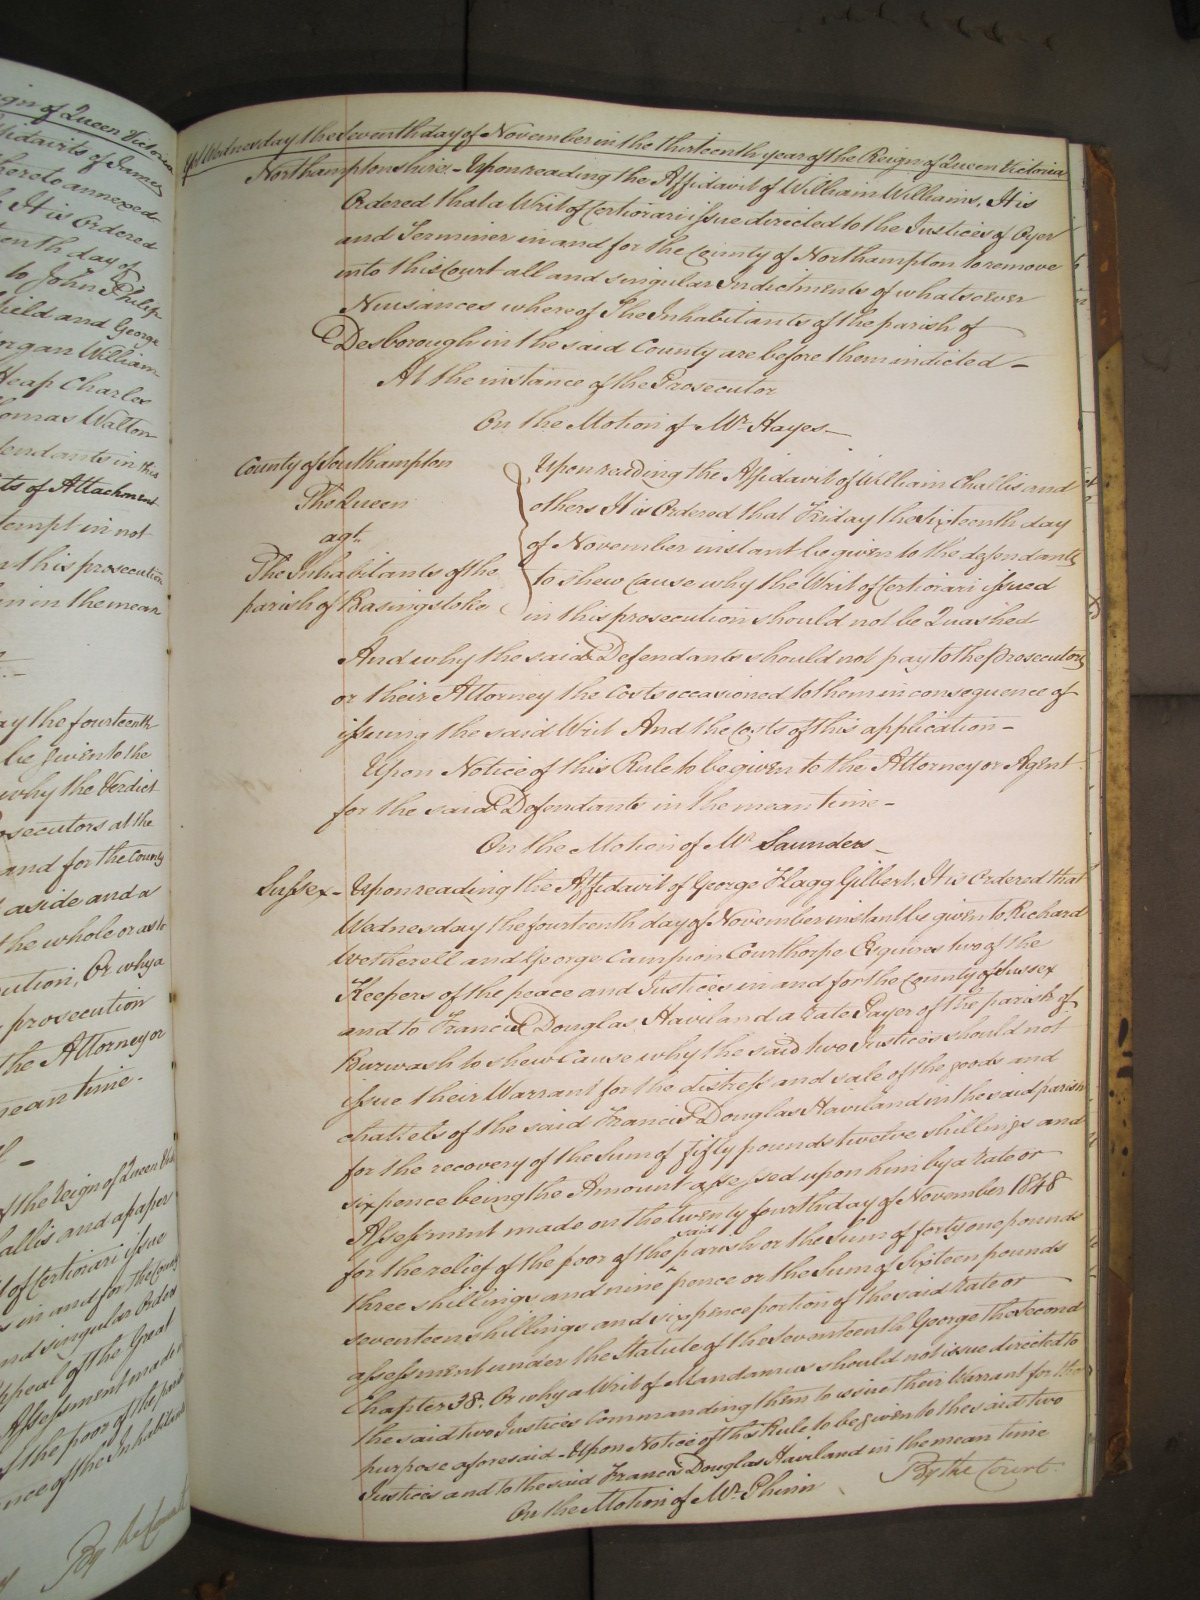 ign of Queen Victoria
ffidavits of James
hereto annexed
It is Ordered
tenth day of
to John Philip
field and George
organ William
Heap Charles
homas Walton
fendants in this
ts of Attachment
tempt in not
n this prosecution
in the mean
ay the fourteenth
be given to the
why the Verdict
osecutors at the
and for the County
aside and a
the whole or as to
cution, Or why a
prosecution
the Attorney or
mean time.
of the reign of Queen
allis and a paper
t of Certiorari issue
s in and for the County
and singular Orders
Appeal of the Great
Assessment made
the poor of the parish
nce of the Inhabitants
By the Court
Wednesday the Seventh day of November in the thirteenth year of the Reign of Queen Victoria
Northamptonshire. - Upon reading the Affidavit of William Williams, It is
Ordered that a Writ of Certiorari issue directed to the Justices of Oyer
and Terminer in and for the County of Northampton to remove
into this Court all and singular Indictments of whatsoever
Nuisances whereof The Inhabitants of the parish of
Desborough in the said County are before them indicted -
At the instance of the Prosecutor
On the Motion of Mr. Hayes -
County of Southampton
The Queen
agt.
The Inhabitants of the
parish of Basingstoke
Upon reading the Affidavit of William Challis and
others It is Ordered that Friday the Sixteenth day
of November instant be given to the defendants
to shew cause why the Writ of Certiorari issued
in this prosecution should not be Quashed
And why the said Defendants should not pay to the Prosecutors
or their Attorney the Costs occasioned to them in consequence of
issuing the said Writ And the Costs of this application -
Upon Notice of this Rule to be given to the Attorney or Agent
for the said Defendants in the mean time -
On the Motion of Mr. Saunders -
Sussex - Upon reading the Affidavit of George Flagg Gilbert, It is Ordered that
Wednesday the fourteenth day of November instant be given to Richard
Wetherell and George Campion Courthope Esquires two of the
Keepers of the peace and Justices in and for the County of Sussex
and to Francis Douglas Haviland a rate Payer of the parish of
Burwash to shew Cause why the said two Justices should not
issue their Warrant for the distress and sale of the goods and
chattels of the said Francis Douglas Haviland in the said parish
for the recovery of the Sum of fifty pounds twelve shillings and
sixpence being the Amount assessed upon him by a rate or
Assessment made on the twenty fourth day of November 1848
for the relief of the poor of the said parish or the Sum of forty one pounds
three shillings and nine pence or the Sum of Sixteen pounds
seventeen shillings and sixpence portion of the said rate or
assessment under the Statute of the Seventeenth George the Second
Chapter 38. Or why a Writ of Mandamus should not issue directed to
the said two Justices Commanding them to issue their Warrant for the
purpose aforesaid - Upon Notice of this Rule to be given to the said two
Justices and to the said Francis Douglas Haviland in the mean time
On the Motion of Mr. Phinn
By the Court